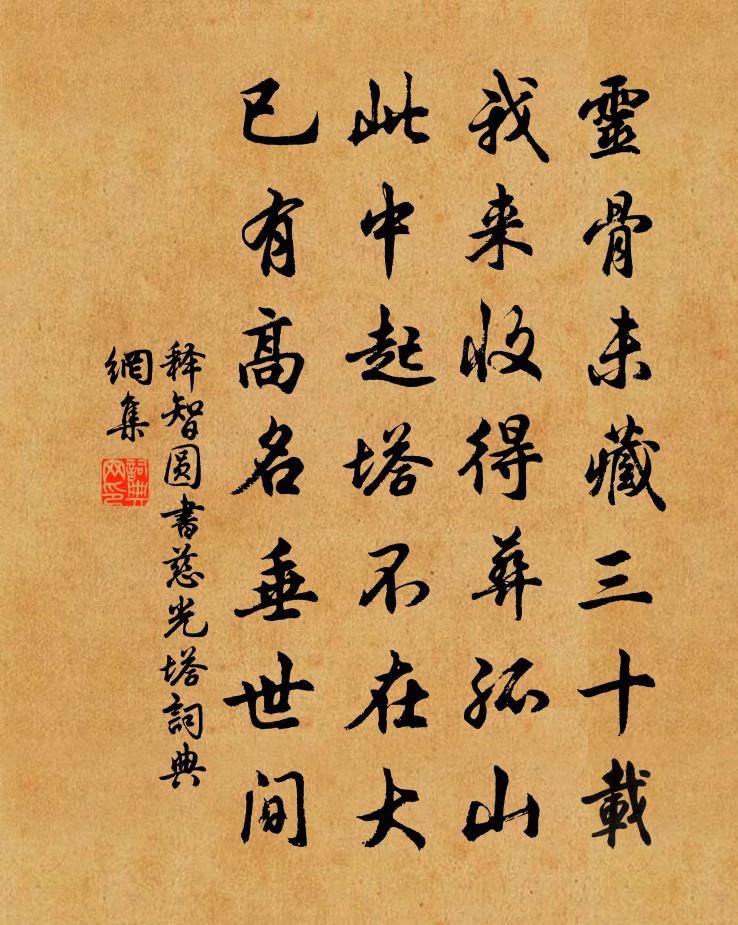 靈骨未藏三十載
我来收得葬孤山
此中起塔不在大
已有高名垂世间
释智圆書慈光塔詞典
網集
詞典
网印